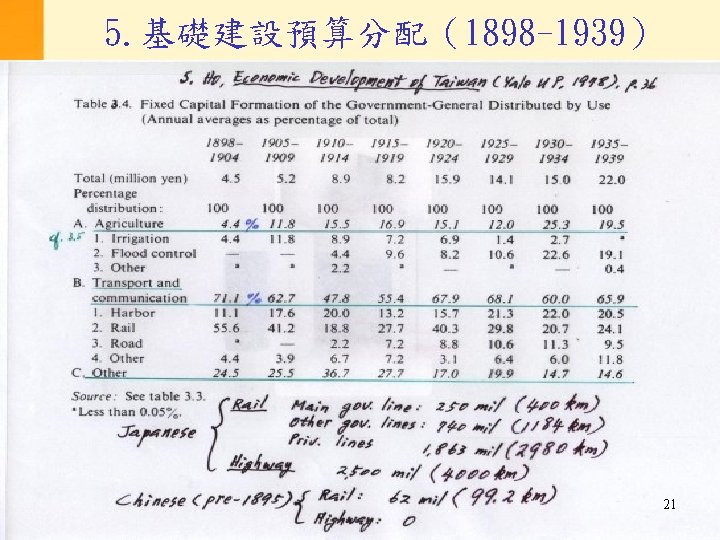 5. 基礎建設預算分配（1898-1939）
S. Ho, Economic Development of Taiwan (Yale U P, 1978), p.36
Table 3.4. Fixed Capital Formation of the Government-General Distributed by Use
(Annual averages as percentage of total)
1898– 1905– 1910– 1915– 1920– 1925– 1930– 1935–
1904 1909 1914 1919 1924 1929 1934 1939
Total (million yen) 4.5 5.2 8.9 8.2 15.9 14.1 15.0 22.0
Percentage
distribution: 100 100 100 100 100 100 100 100
A. Agriculture 4.4 % 11.8 15.5 16.9 15.1 12.0 25.3 19.5
cf. 3.5 1. Irrigation 4.4 11.8 8.9 7.2 6.9 1.4 2.7 *
2. Flood control — — 4.4 9.6 8.2 10.6 22.6 19.1
3. Other * * 2.2 * — * — 0.4
B. Transport and
communication 71.1 % 62.7 47.8 55.4 67.9 68.1 60.0 65.9
1. Harbor 11.1 17.6 20.0 13.2 15.7 21.3 22.0 20.5
2. Rail 55.6 41.2 18.8 27.7 40.3 29.8 20.7 24.1
3. Road * — 2.2 7.2 8.8 10.6 11.3 9.5
4. Other 4.4 3.9 6.7 7.2 3.1 6.4 6.0 11.8
C. Other 24.5 25.5 36.7 27.7 17.0 19.9 14.7 14.6
Source: See table 3.3.
*Less than 0.05%.
Japanese { Rail Main gov. line: 250 mil (400 km)
Other gov. lines: 740 mil (1184 km)
Priv. lines 1,863 mil (2980 km)
Highway 2,500 mil (4000 km)
Chinese (pre-1895) { Rail: 62 mil (99.2 km)
Highway: 0
21